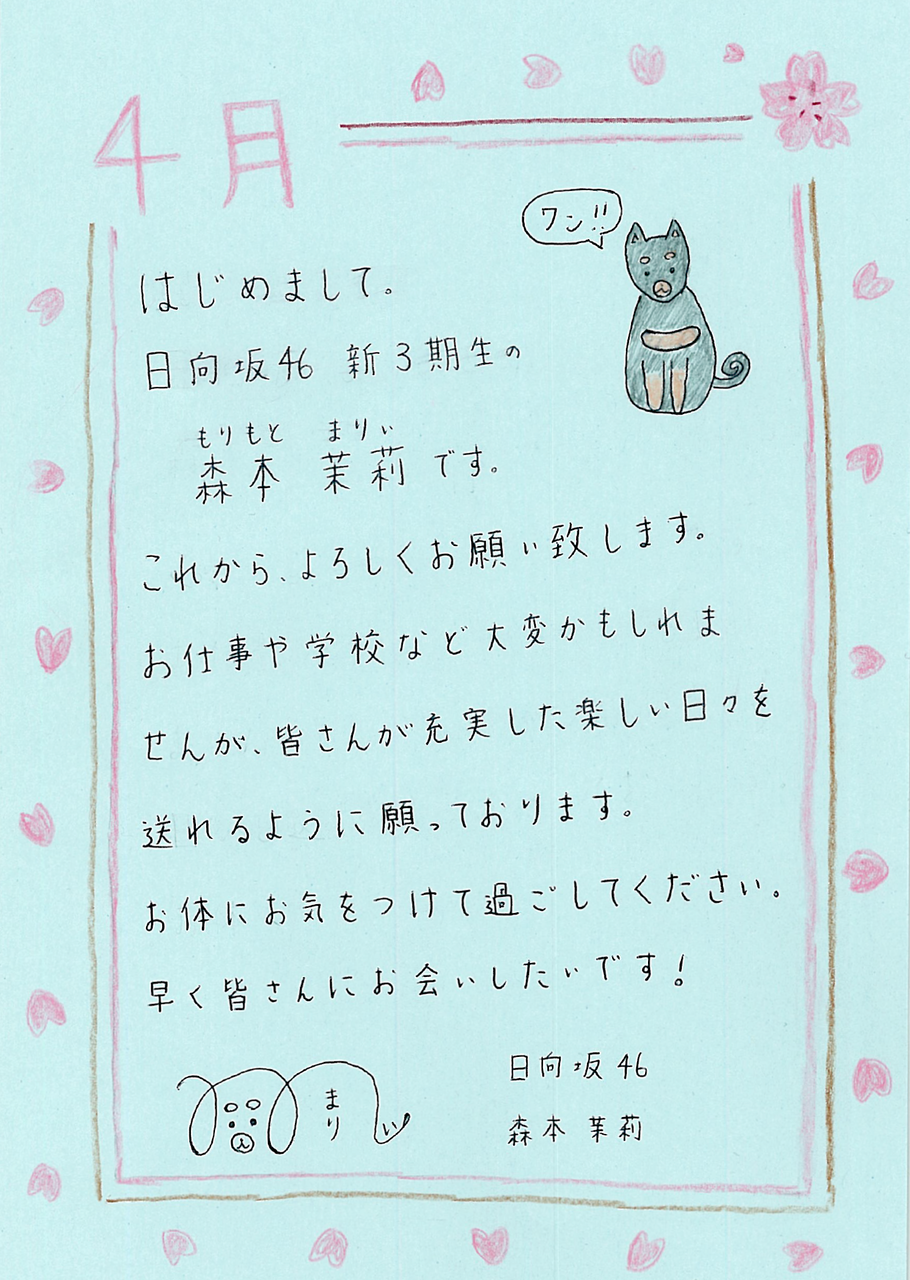 4月
ワン!!
はじめまして。
日向坂46 新3期生の
もりもと まりぃ
森本 茉莉 です。
これから、よろしくお願い致します。
お仕事や学校など大変かもしれま
せんが、皆さんが充実した楽しい日々を
送れるように願っております。
お体にお気をつけて過ごしてください。
早く皆さんにお会いしたいです!
まりぃ
日向坂46
森本 茉莉